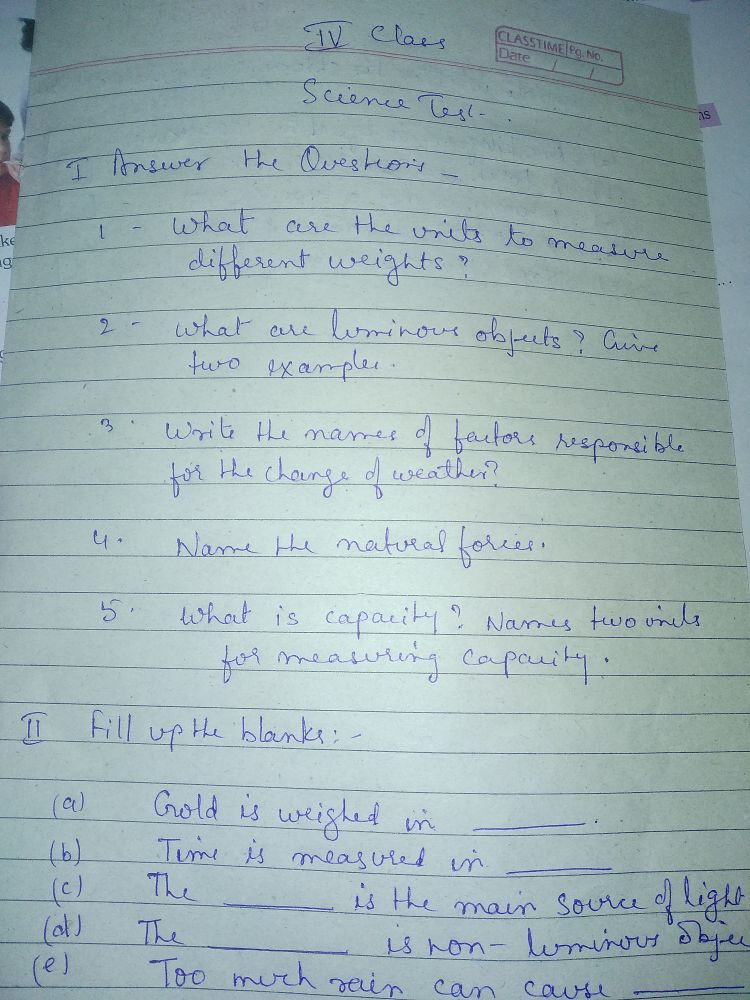 IV Class
CLASSTIME Pg. No.
Date / /
Science Test.
I Answer the Questions -
1 - What are the units to measure
different weights?
2 - What are luminous objects? Give
two examples.
3. Write the names of factors responsible
for the change of weather?
4. Name the natural forces.
5. What is capacity? Names two units
for measuring capacity.
II Fill up the blanks: -
(a) Gold is weighed in ______.
(b) Time is measured in ______
(c) The ______ is the main source of light
(d) The ______ is non-luminous objec
(e) Too much rain can cause ______
ke
ns